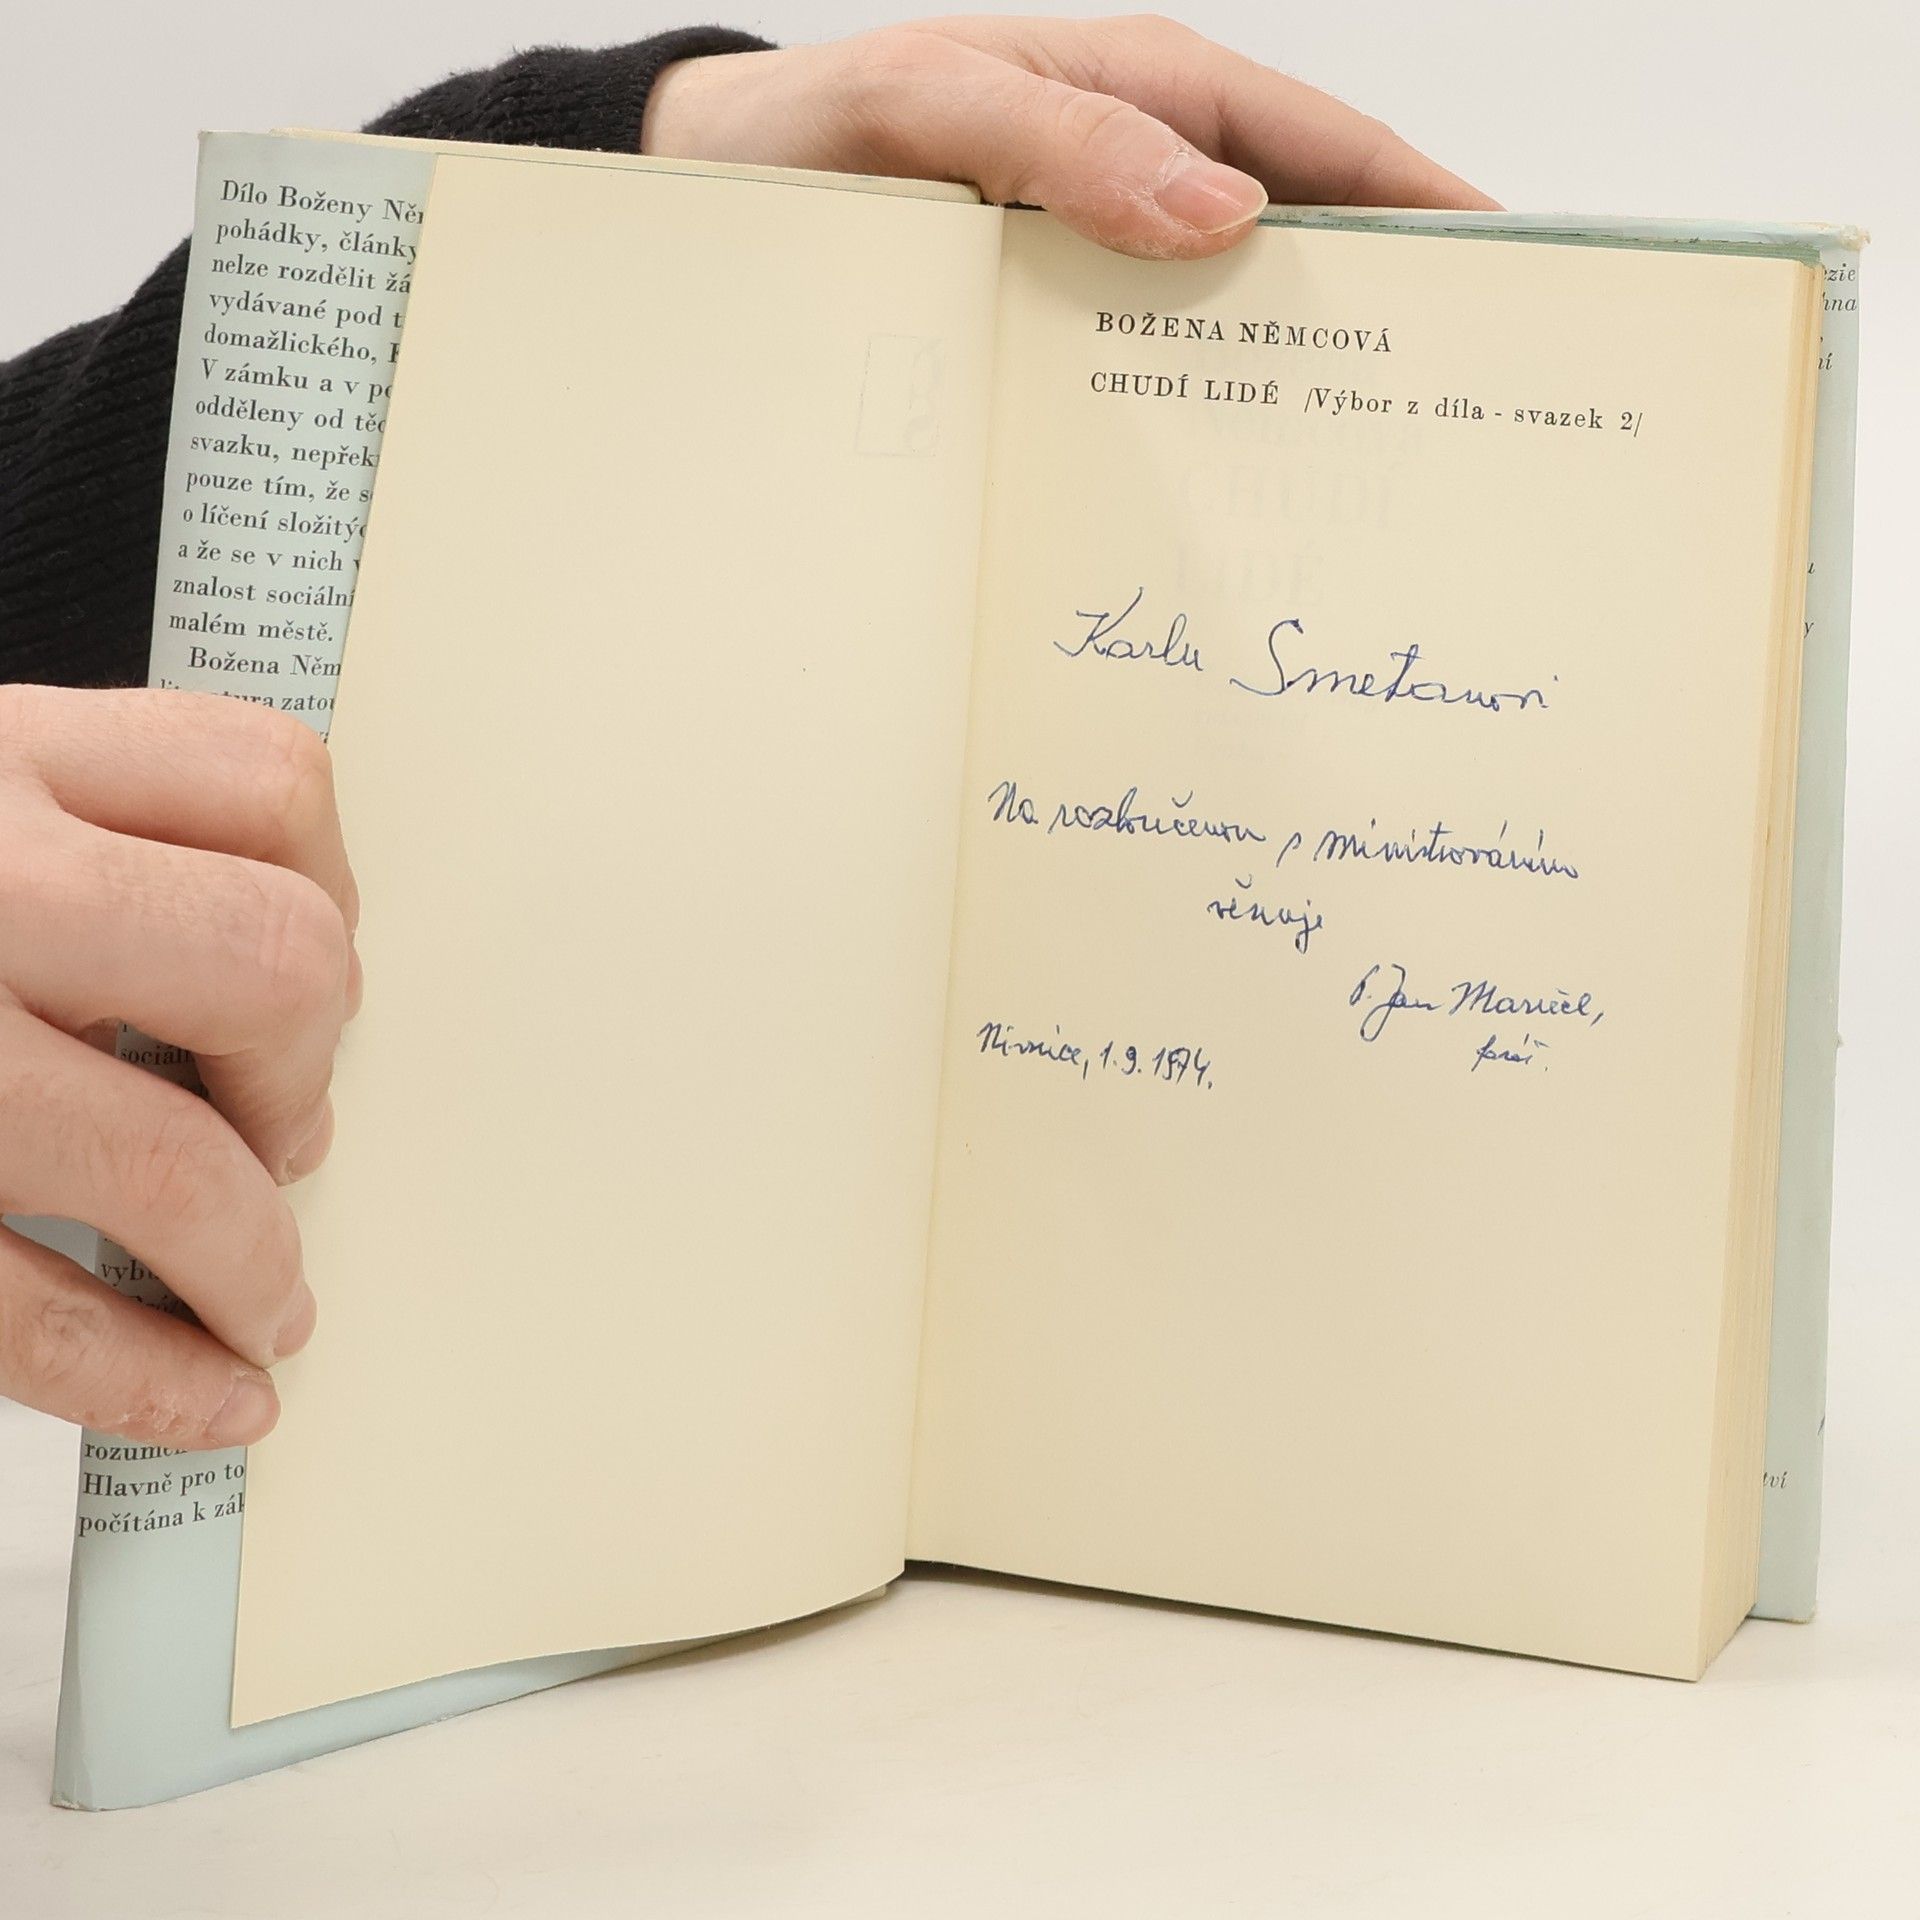 Dílo Boženy Něm
pohádky, články
nelze rozdělit žá
vydávané pod t
domažlického,
V zámku a v po
odděleny od těc
svazku, nepřek
pouze tím, že s
o líčení složitýc
a že se v nich v
znalost sociální
malém městě.
Božena Něm
zatou
sociáln
rozum
Hlavně pro to
počítána k zák
BOŽENA NĚMCOVÁ
CHUDÍ LIDÉ /Výbor z díla - svazek 2/
CHUDÍ
LIDÉ
Karlu Smetanovi
Na rozloučenou s ministrováním
věnuje
P. Jan
Nivnice, 1.9.1974.
ezie
hna
ní
u
y
tví